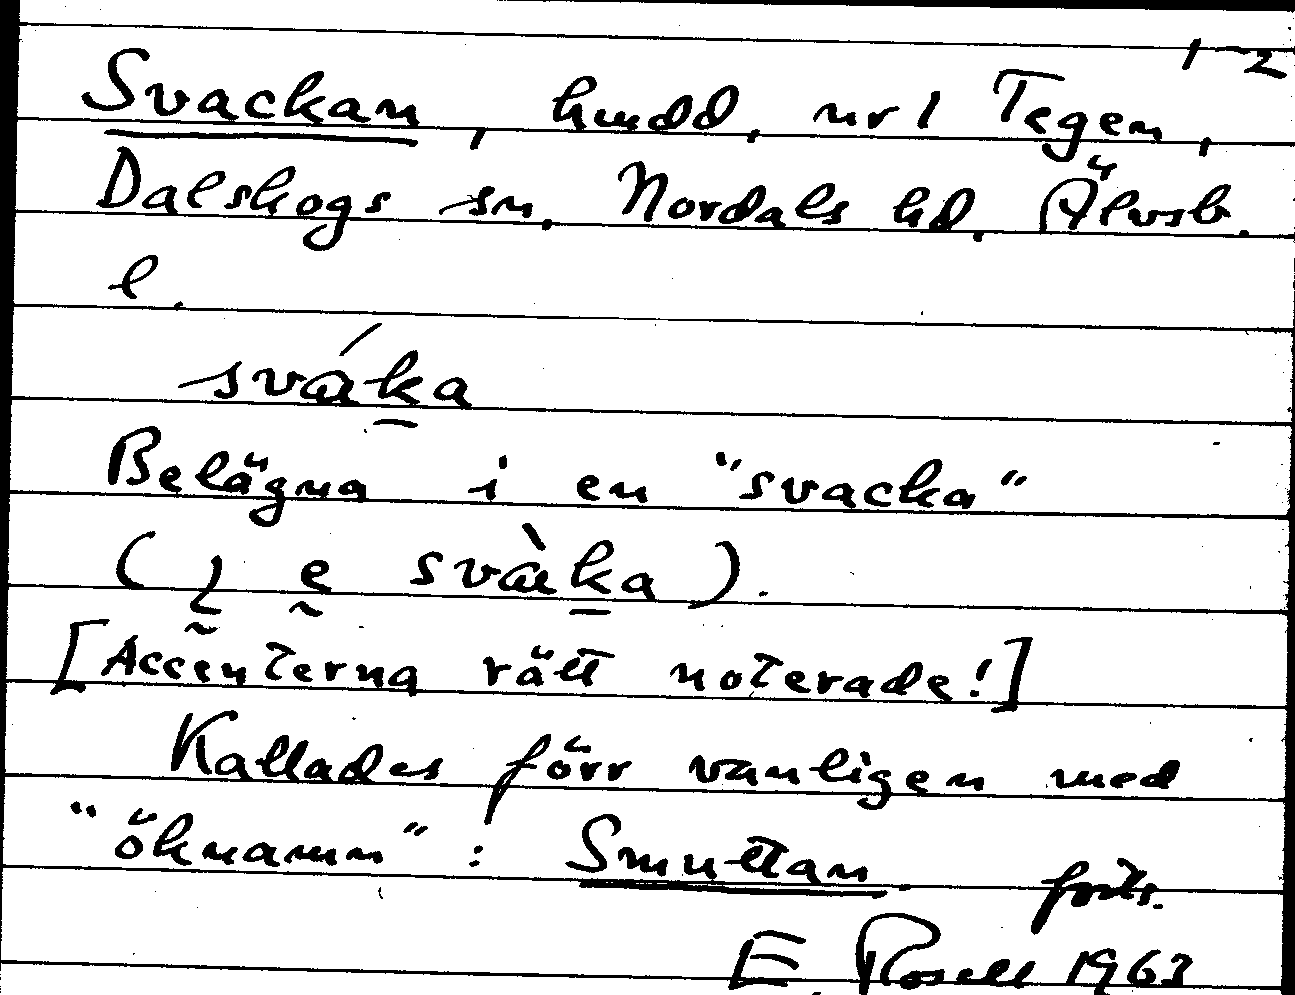 1-2
Svackan, hmdd. nr 1 Tegen,
Dalskogs sn. Nordals hd. Älvsb.
l.
sváka
Belägna i en "svacka"
(svàka).
[Accenterna rätt noterade!]
Kallades förr vanligen med
"öknamn": Smuttan. forts.
E. Rosell 1963